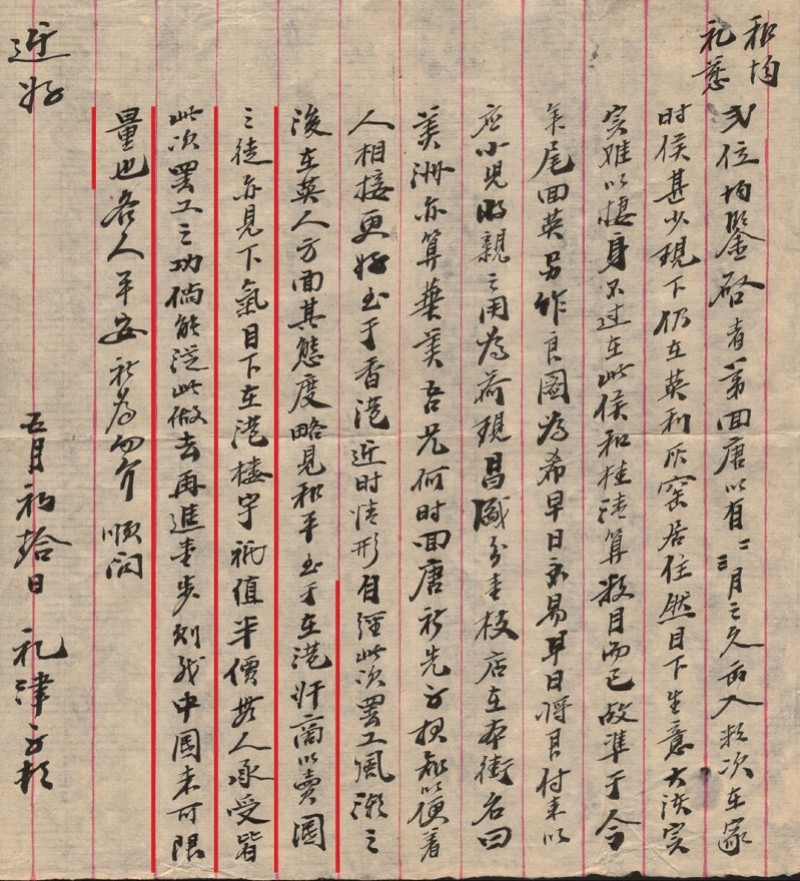 和均
礼慈
弍位均鑒啓者弟回唐以有二三月之久函入数次在家
时侯甚少現下仍在英利灰窑居住然目下生意大淡実
実难以棲身不过在此侯和桂清算数目而已故準于今
年尾回英另作良圖為希早日交易早日將艮付来以
应小児親之用為荷現昌盛分壹枝店在本街名曰
美洲亦算華美吾兄何时回唐祈先示知以便着
人相接更好至于香港近时情形自經此次罢工風潮之
後在英人方面其態度略見和平至于在港奸商以賣國
之徒亦見下氣目下在港楼宇祗值半價無人承受皆
此次罢工之功倘能從此做去再進壹步则我中國未可限
量也各人平安祈為勿介 順问
近好
五月初拾日 礼津